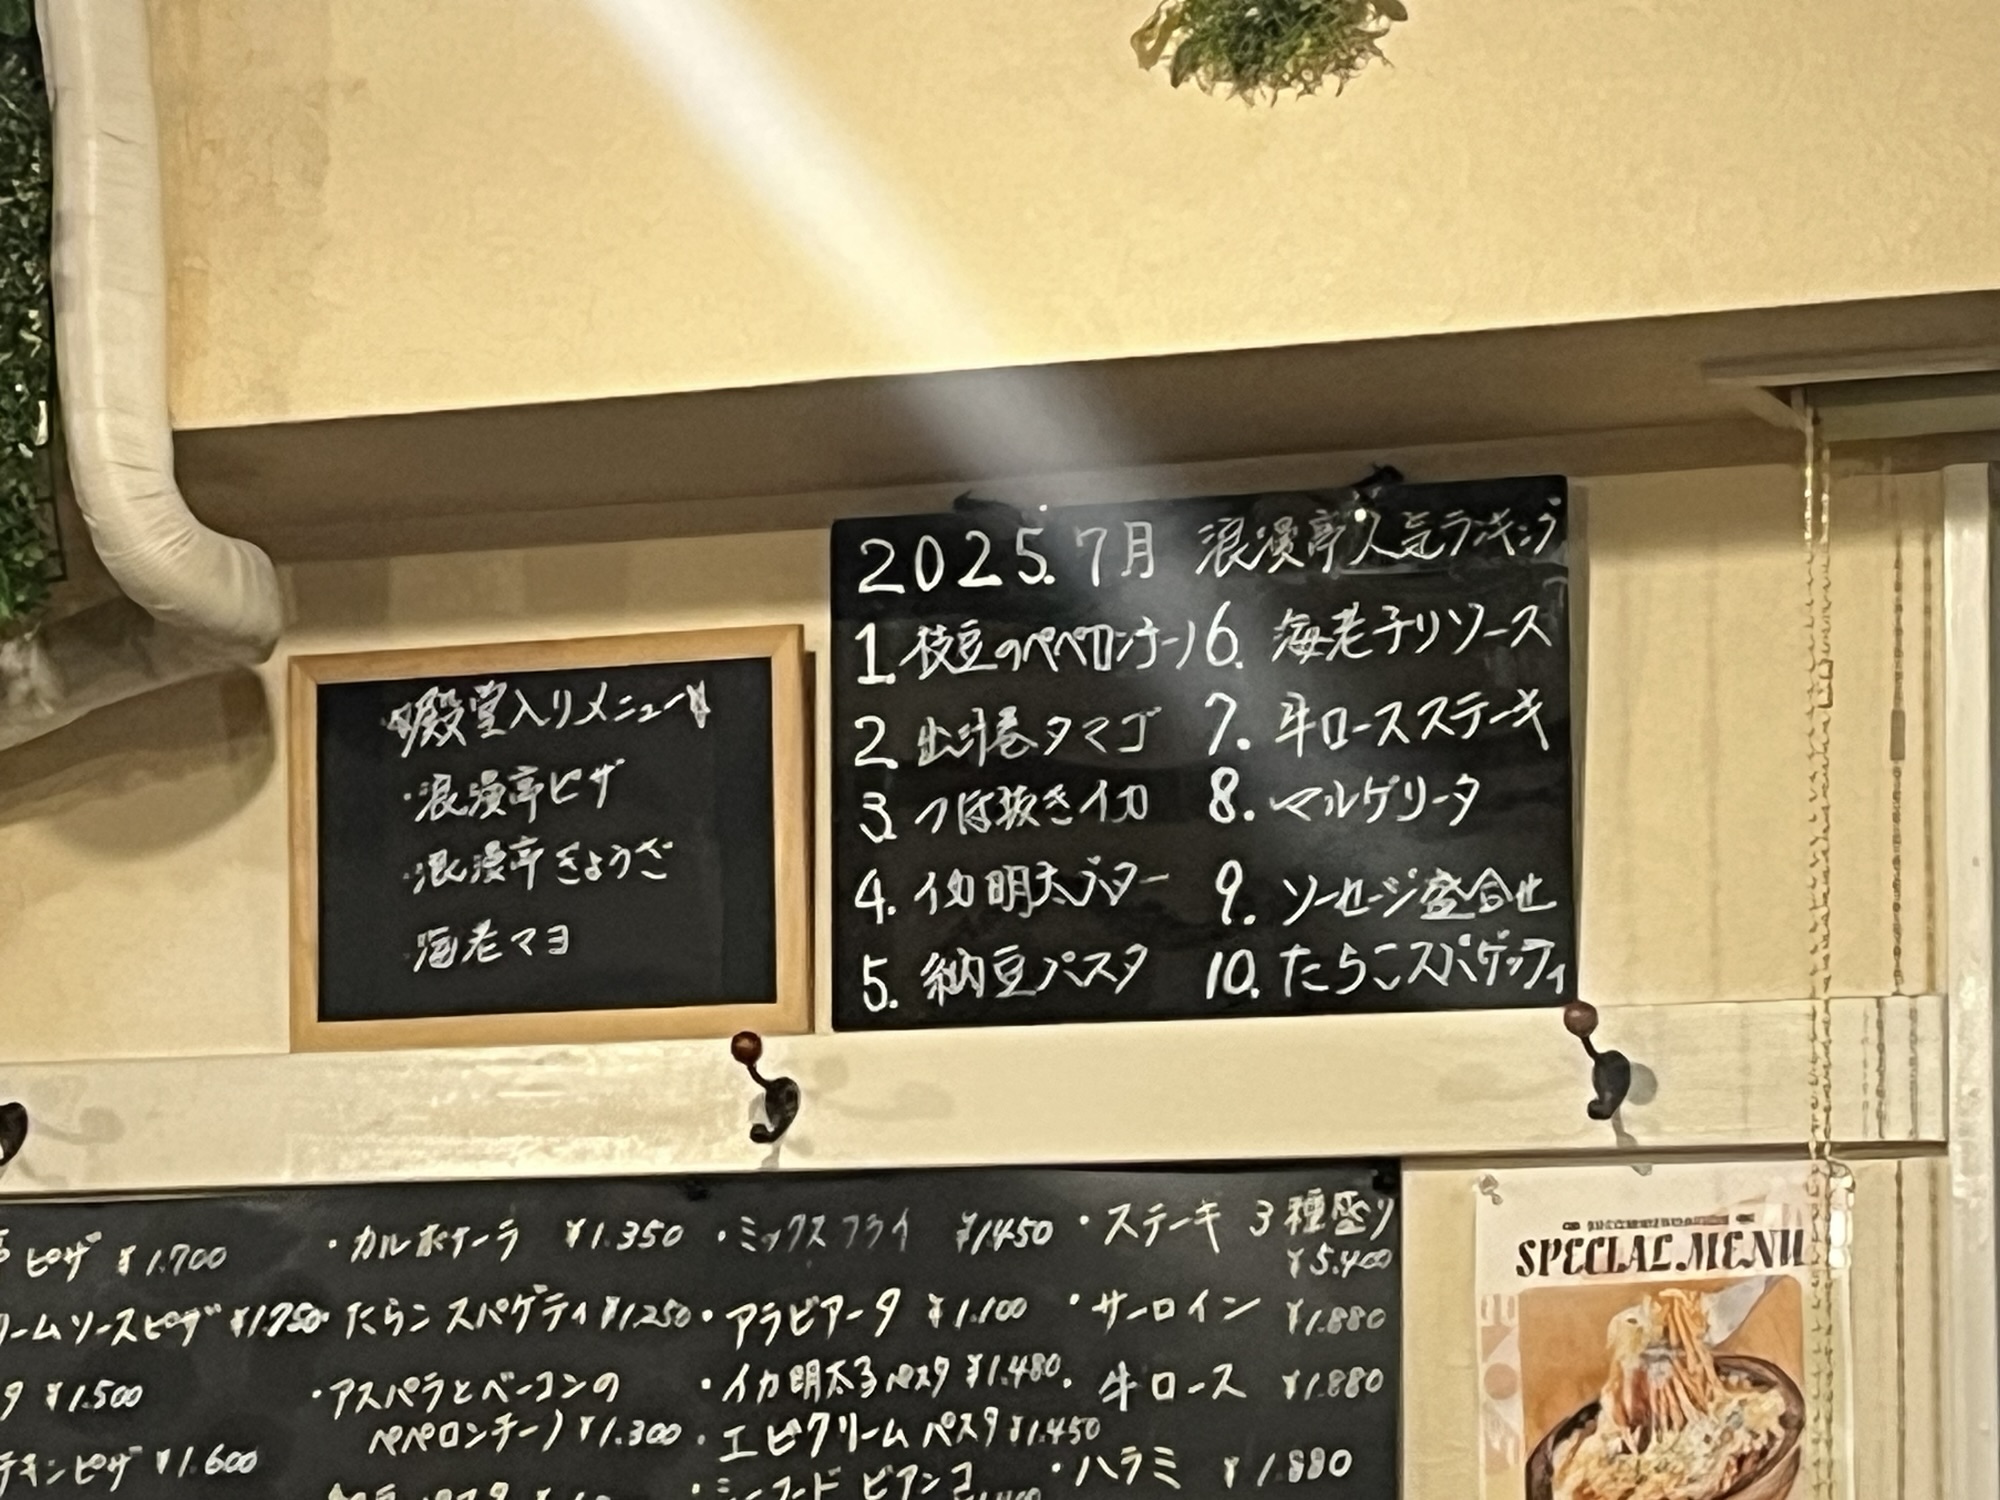 殿堂入りメニュー
・浪漫亭ピザ
・浪漫亭ぎょうざ
・海老マヨ
2025.7月 浪漫亭人気ランキング
1.枝豆のペペロンチーノ
2.出汁巻タマゴ
3.つぼ抜きイカ
4.イカ明太バター
5.納豆パスタ
6.海老チリソース
7.牛ロースステーキ
8.マルゲリータ
9.ソーセージ盛合せ
10.たらこスパゲッティ
ピザ ¥1.700
リームソースピザ ¥1.750
タ ¥1.500
チキンピザ ¥1.600
・カルボナーラ ¥1.350
・たらこスパゲティ ¥1.250
・アスパラとベーコンの
ペペロンチーノ ¥1.300
・ミックスフライ ¥1.450
・アラビアータ ¥1.100
・イカ明太子パスタ ¥1.480
・エビクリームパスタ ¥1.450
・シーフード ビアンコ
・ステーキ 3種盛り
¥5.400
・サーロイン ¥1.880
・牛ロース ¥1.880
・ハラミ ¥1.880
SPECIAL MENU